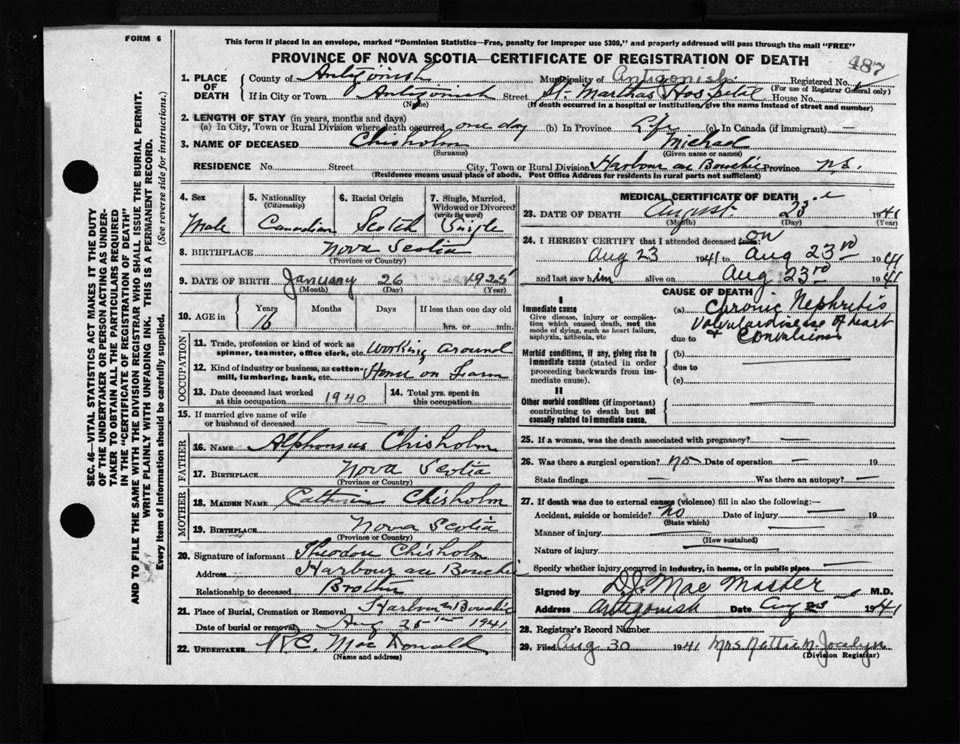 FORM 6
This form if placed in an envelope, marked "Dominion Statistics—Free, penalty for improper use $300," and properly addressed will pass through the mail "FREE"
PROVINCE OF NOVA SCOTIA—CERTIFICATE OF REGISTRATION OF DEATH
487
1. PLACE OF DEATH County of Antigonish Municipality of Antigonish Registered No.
(For use of Registrar General only)
If in City or Town Antigonish Street St. Marthas Hospital House No.
(Name) (If death occurred in a hospital or institution, give the name instead of street and number)
2. LENGTH OF STAY (in years, months and days)
(a) In City, Town or Rural Division where death occurred one day (b) In Province Life (c) In Canada (if immigrant) —
3. NAME OF DECEASED Chisholm Michael
(Surname) (Given name or names)
RESIDENCE No. Street City, Town or Rural Division Harbour au Bouchie Province N.S.
(Residence means usual place of abode. Post Office Address for residents in rural parts not sufficient)
4. Sex Male
5. Nationality (Citizenship) Canadian
6. Racial Origin Scotch
7. Single, Married, Widowed or Divorced (write the word) Single
8. BIRTHPLACE Nova Scotia
(Province or Country)
9. DATE OF BIRTH January 26 1925
(Month) (Day) (Year)
10. AGE in Years 16 Months Days If less than one day old
hrs. or min.
OCCUPATION
11. Trade, profession or kind of work as spinner, teamster, office clerk, etc. Working around
12. Kind of industry or business, as cotton-mill, lumbering, bank, etc. Home on Farm
13. Date deceased last worked at this occupation 1940
14. Total yrs. spent in this occupation
15. If married give name of wife or husband of deceased —
FATHER
16. NAME Alphonsus Chisholm
17. BIRTHPLACE Nova Scotia
(Province or Country)
MOTHER
18. MAIDEN NAME Catherine Chisholm
19. BIRTHPLACE Nova Scotia
(Province or Country)
20. Signature of informant Theodore Chisholm
Address Harbour au Bouchie
Relationship to deceased Brother
21. Place of Burial, Cremation or Removal Harbour Bouchie
Date of burial or removal Aug 25 1941
22. UNDERTAKER MacDonald
(Name and address)
MEDICAL CERTIFICATE OF DEATH
23. DATE OF DEATH August 23rd 1941
(Month) (Day) (Year)
24. I HEREBY CERTIFY that I attended deceased from: on
Aug 23 1941 to Aug 23rd 1941
and last saw him alive on Aug 23rd 1941
CAUSE OF DEATH
I
Immediate cause
Give disease, injury or complication which caused death, not the mode of dying, such as heart failure, asphyxia, asthenia, etc
(a) Chronic Nephritis
Valvular disease of heart
due to + Convulsions
Morbid conditions, if any, giving rise to immediate cause (stated in order proceeding backwards from immediate cause).
(b)
due to
(c)
II
Other morbid conditions (if important) contributing to death but not causally related to immediate cause.
25. If a woman, was the death associated with pregnancy? —
26. Was there a surgical operation? no Date of operation — 19
State findings — Was there an autopsy? —
27. If death was due to external causes (violence) fill in also the following:—
Accident, suicide or homicide? no Date of injury — 19
(State which)
Manner of injury —
(How sustained)
Nature of injury —
Specify whether injury occurred in industry, in home, or in public place —
Signed by D.J. MacMaster M.D.
Address Antigonish Date Aug 23 1941
28. Registrar's Record Number
29. Filed Aug 30 1941 Mrs Nettie M. Jocelyn
(Division Registrar)
SEC. 46—VITAL STATISTICS ACT MAKES IT THE DUTY
OF THE UNDERTAKER OR PERSON ACTING AS UNDER-
TAKER TO OBTAIN ALL THE PARTICULARS REQUIRED
IN THE "CERTIFICATE OF REGISTRATION OF DEATH"
AND TO FILE THE SAME WITH THE DIVISION REGISTRAR WHO SHALL ISSUE THE BURIAL PERMIT.
WRITE PLAINLY WITH UNFADING INK. THIS IS A PERMANENT RECORD.
Every item of information should be carefully supplied. (See reverse side for instructions.)